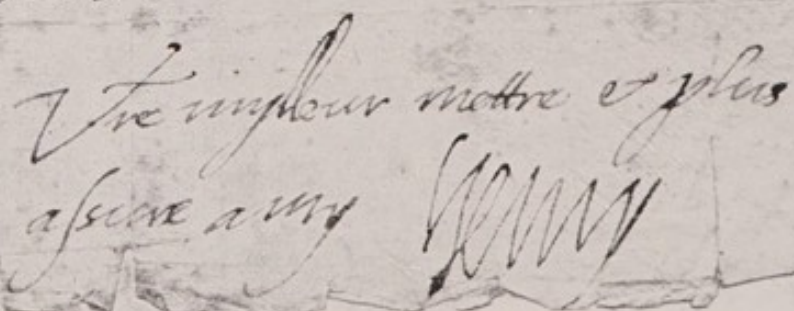 Vre mylleur mettre et plus
assure amy Henry